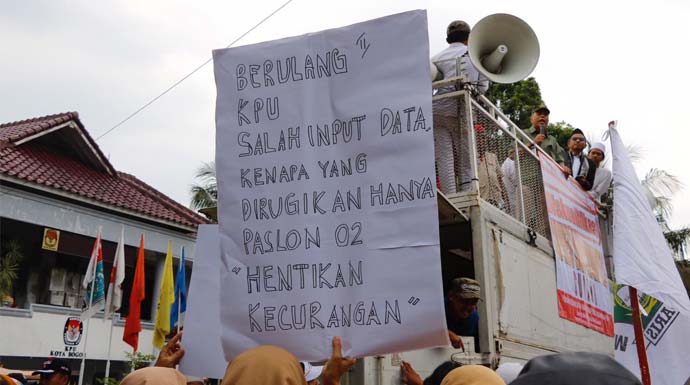 BERULANG"
KPU
SALAH INPUT DATA,
KENAPA YANG
DIRUGIKAN HANYA
PASLON 02
"HENTIKAN
KECURANGAN"
KPU
KOTA BOGOR
KPU
ARIS